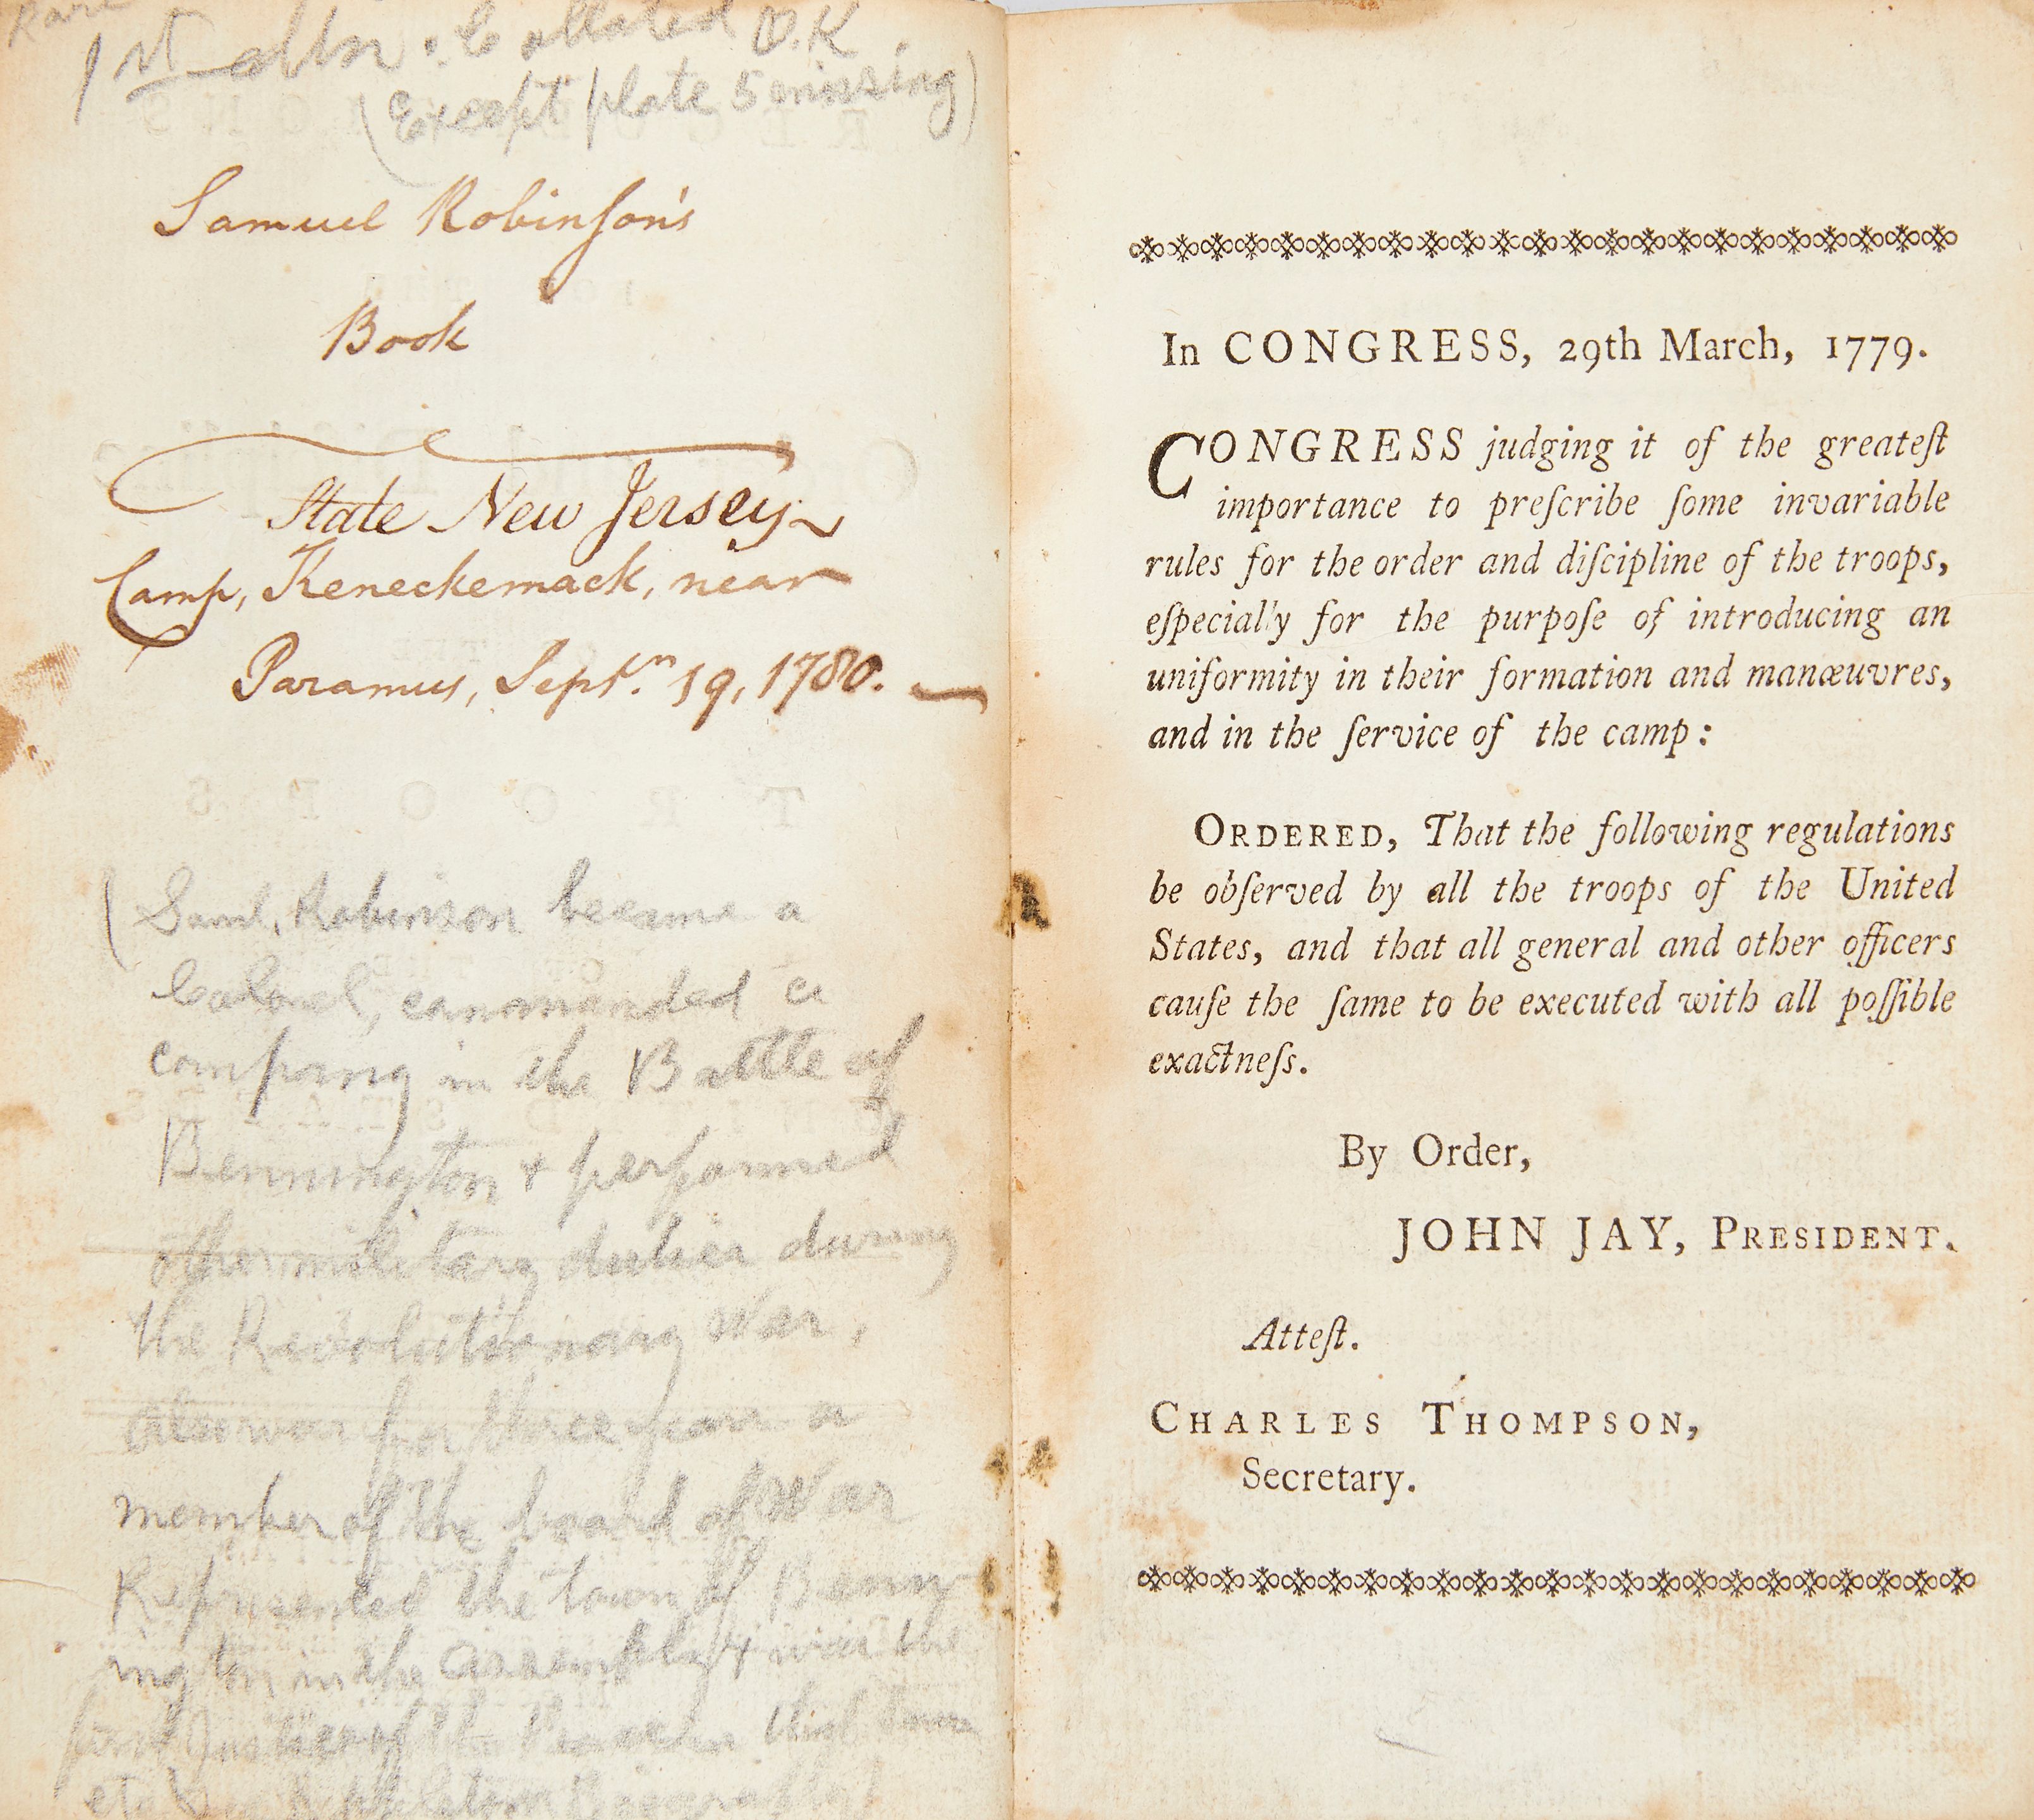 Rare
1st edtn. Collated O.K
(Except plate 5 missing)
Samuel Robinſon's
Book
State New Jersey
Camp, Keneckemack, near
Paramus, Sept.r 19, 1780.
(Saml. Robinson became a
Colonel, commanded a
company in the Battle of
Bennington & performed
other military duties during
the Revolutionary War,
also was for three years a
member of the board of War
Represented the town of Benn-
ington in the assembly & was the
first Justice of the Peace in that town
etc See Appletons Biography)
In CONGRESS, 29th March, 1779.
CONGRESS judging it of the greateſt
importance to preſcribe ſome invariable
rules for the order and diſcipline of the troops,
eſpecially for the purpoſe of introducing an
uniformity in their formation and manœuvres,
and in the ſervice of the camp:
ORDERED, That the following regulations
be obſerved by all the troops of the United
States, and that all general and other officers
cauſe the ſame to be executed with all poſſible
exactneſs.
By Order,
JOHN JAY, PRESIDENT.
Atteſt.
CHARLES THOMPSON,
Secretary.